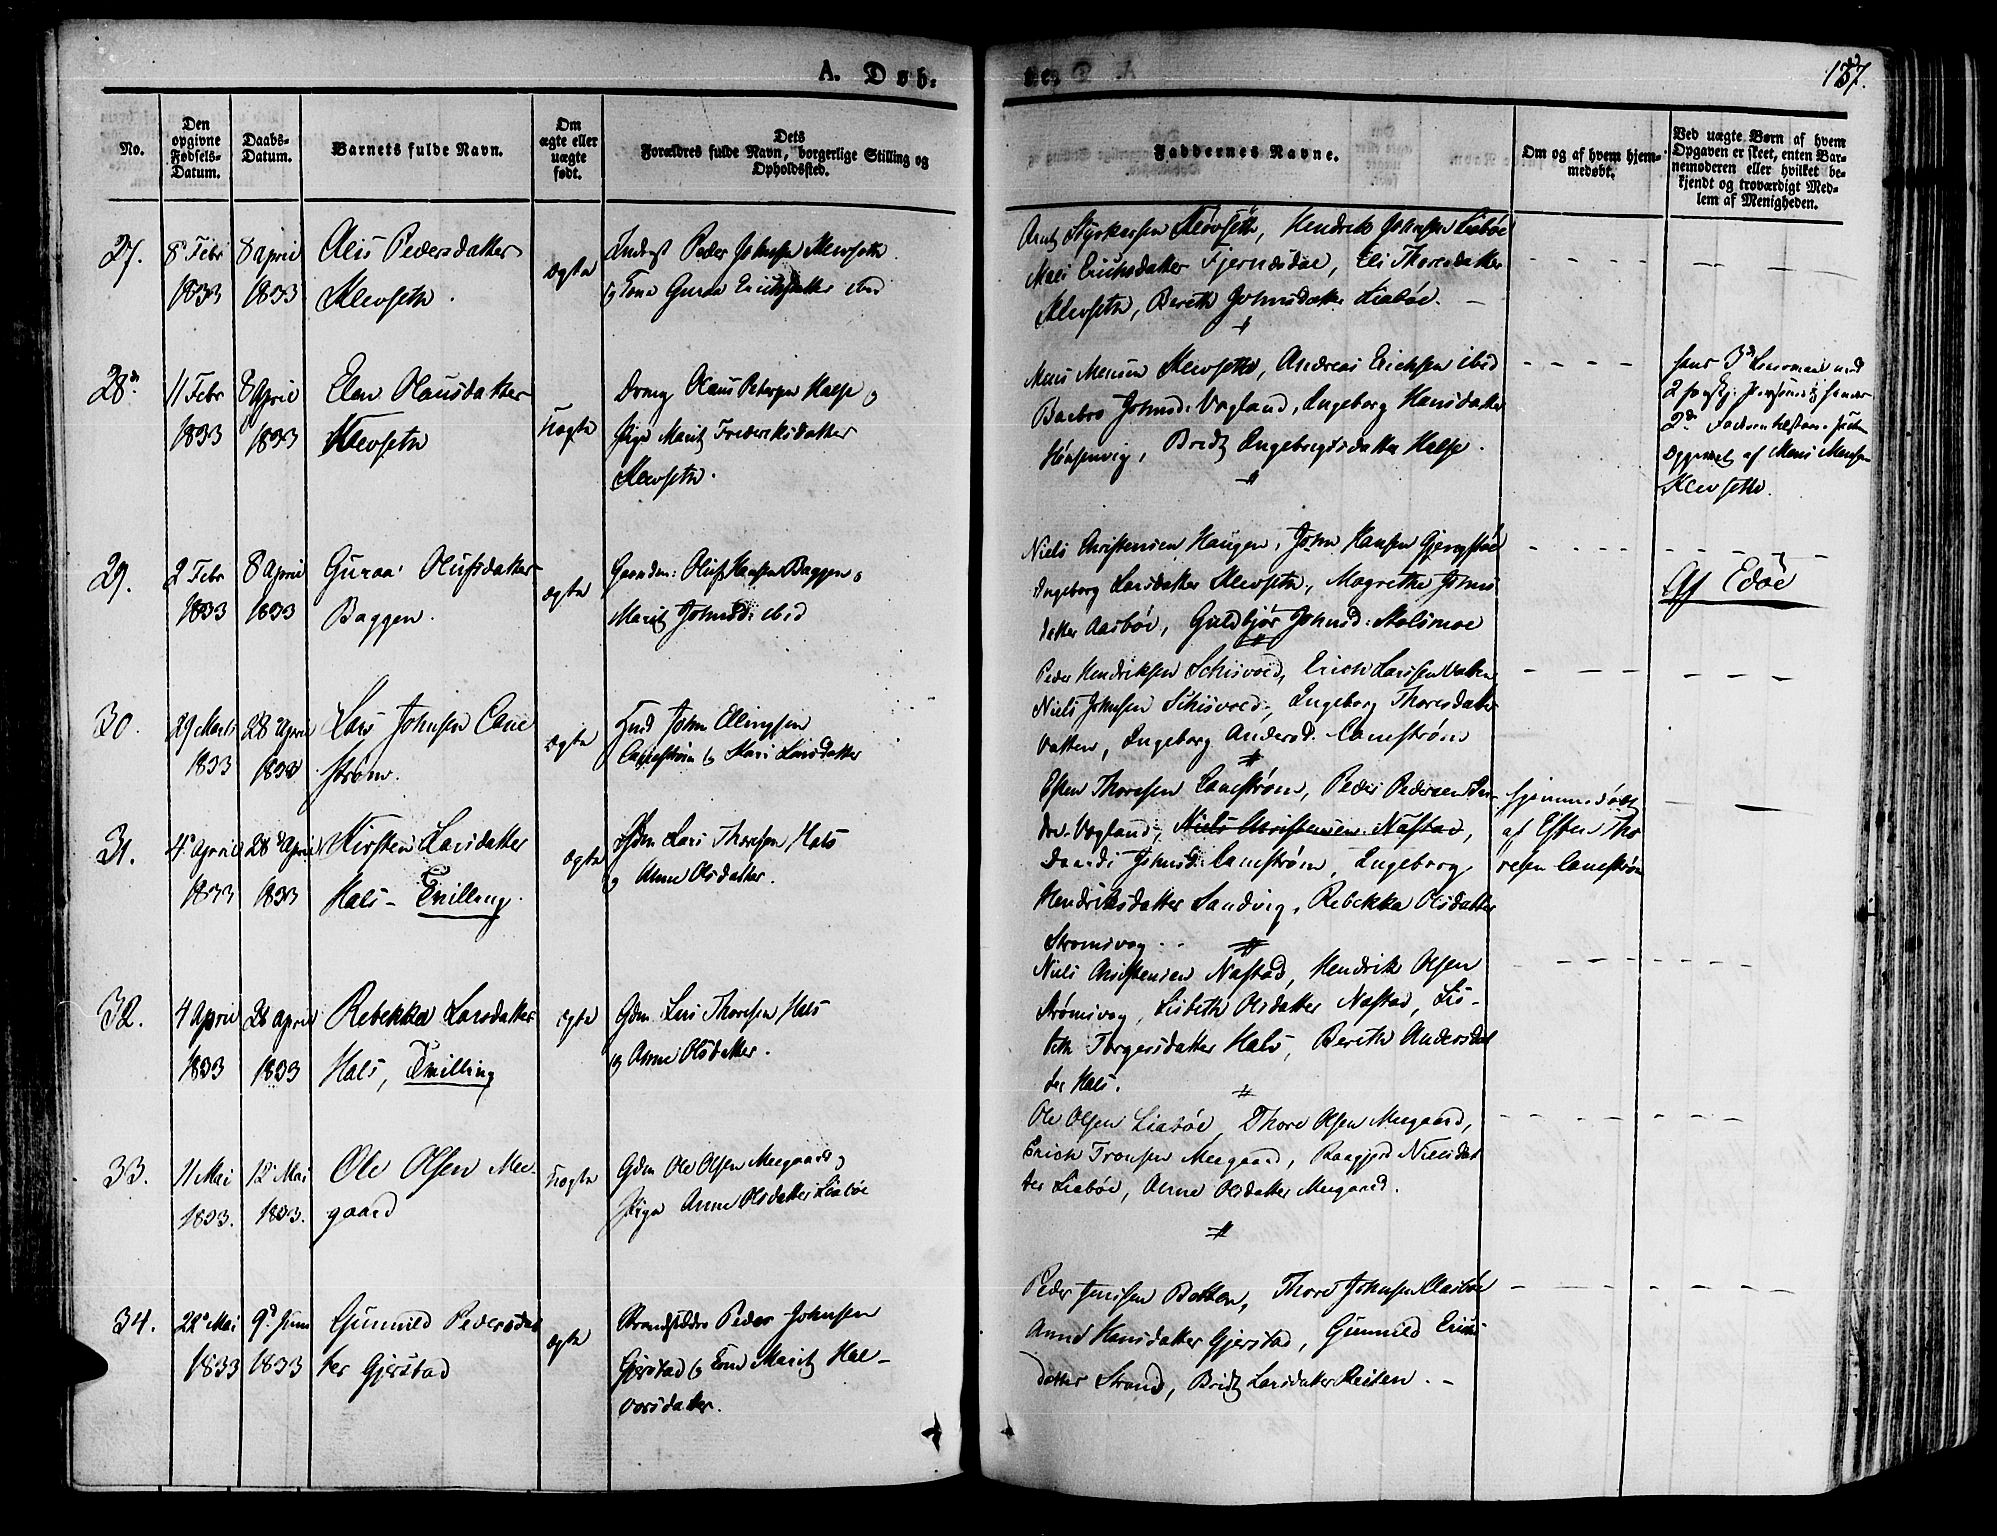 A. Døb-
137.
No.
Den
opgivne
Fødsels-
Datum.
Daabs-
Datum.
Barnets fulde Navn.
Om
ægte eller
uægte
født.
Dets
Forældres fulde Navn, borgerlige Stilling og
Opholdssted.
Faddernes Navne.
Om og af hvem hjem-
medøbt.
Ved uægte Børn af hvem
Opgaven er skeet, enten Bar-
nemoderen eller hvilket be-
kjendt og troværdigt Med-
lem af Menigheden.
27.
8 Febr
1833
8 April
1833
Pedersdatter
Klevseth.
Ægte
Peder Johnsen Klevseth
Guraa Erichsdatter ibid
Klevseth, Hendrik Johnsen Liabøe
Erichsdatter Eli Thoresdatter
Klevseth, Bereth Johnsdatter Liabøe.
28
11 Febr
1833
8 April
1833
Elen Olausdatter
Klevseth
Uægte
Dreng Olaus Petersen Halse og
Pige Marit Frederiksdatter
Klevseth.
Klevseth, Andreas Erichsen ibid
Johnsd: Vogland, Ingeborg Hansdatter
Bridt Ingebrigtsdatter Halse.
af Mons Monsen
Klevseth.
29.
2 Febr
1833
8 April
1833
Guraa Olufsdatter
Baggen.
Ægte
Gaardm: Oluf Hansen Baggen og
Marit Johnsd: ibid
Niels Christensen Haugen, John Hansen
Ingeborg Larsdatter Klevseth, Magrethe Johns
datter Aasbøe, Guldbjør Johnsd: Stolsmoe
Af Edøe
30.
29 Marts
1833
28 April
1833
Lars Johnsen Cane
strøm.
Ægte
John Ellingsen
Canestrøm og Mari Larsdatter
Peder Hendriksen Schisvold, Erich Larssen Vatten
Niels Johnsen Schisvold, Ingeborg Thoresdatter
Vatten, Ingeborg Andersd. Canestrøm
31.
4 April
1833
28 April
1833
Kirsten Larsdatter
Hals - Tvilling.
Ægte
Gdm Lars Thoresen Hals
og Anne Olsdatter.
Esten Thoresen Canestrøm, Peder Pedersen
Vogland, Niels Christensen Nastad,
Johnsd: Canestrøm, Ingeborg
Hendriksdatter Sandvig, Rebekka Olsdatter
Strømsvog.
Hjemmedøbt
af Esten Tho
resen Canestrøm
32.
4 April
1833
28 April
1833
Rebekka Larsdatter
Hals, Tvilling
Ægte
Gdm Lars Thoresen Hals
og Anne Olsdatter.
Niels Christensen Nastad, Hendrik Olsen
Strømsvog, Lisbeth Olsdatter Nastad, Lis-
beth Torgersdatter Hals, Bereth Andersdat
ter Hals.
33.
11 Mai
1833.
12 Mai
1833.
Ole Olsen Mee-
gaard
Uægte
Gdm Ole Olsen Meegaard og
Pige Anne Olsdatter Liabøe
Ole Olsen Liabøe, Thore Olsen Meegaard,
Erich Tronsen Meegaard, Nielsdat
ter Liabøe, Anne Olsdatter Meegaard.
34.
22 Mai
1833
9 Juni
1833
Gunnild Pedersdat
ter Gjerstad
Ægte
Strandsidder Peder Johnsen
Gjerstad og Marit Hal-
vorsdatter.
Peder Jenssen Botten, Thore Johnsen Aasbøe
Anne Hansdatter Gjerstad, Gunnild Erichs
datter Strand, Bridt Larsdatter Reiten.